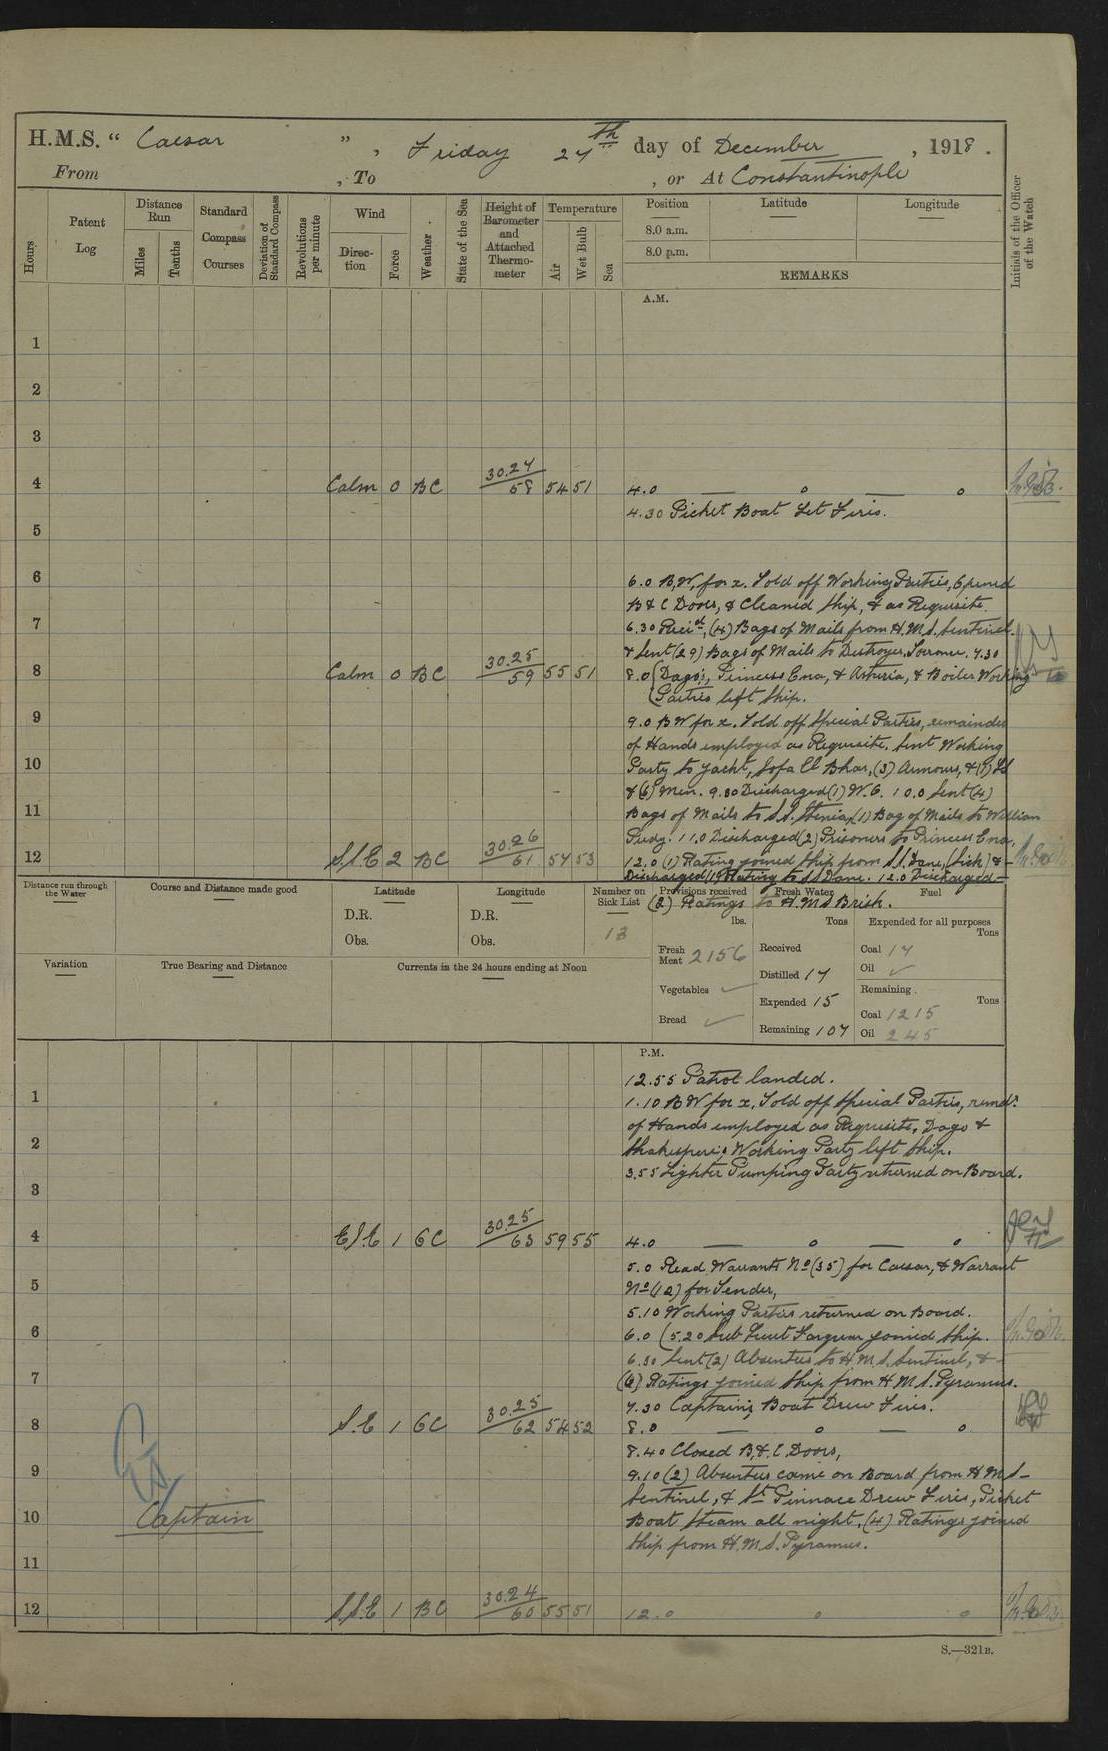 H.M.S. “ Caesar ” , Friday 27th day of December , 1918 .
From , To , or At Constantinople
Hours
Patent Log
Distance Run
Miles
Tenths
Standard Compass Courses
Deviation of Standard Compass
Revolutions per minute
Wind
Direction
Force
Weather
State of the Sea
Height of Barometer and Attached Thermometer
Temperature
Air
Wet Bulb
Sea
Position Latitude Longitude
8.0 a.m.
8.0 p.m.
REMARKS
Initials of the Officer of the Watch
A.M.
1
2
3
4 Calm 0 BC 30.27 58 54 51 4.0 — o — o
4.30 Picket Boat Lit Fires.
5
6
6.0 B.W. for x. Told off Working Parties, Opened
B & C Doors, & Cleaned Ship, & as Requisite.
7
6.30 Recd. (4) Bags of Mails from H.M.S. Sentinel.
& Sent (29) Bags of Mails to Destroyer 7.30
8 Calm 0 BC 30.25 59 55 51 8.0 (Dago's, Princess Ena, & Asturia, & Boiler Working
Parties left Ship.
9
9.0 BW for x. Told off Special Parties, remainder
of Hands employed as Requisite. Sent Working
10
Party to Yacht, (3) Armours, & (1)
& (6) Men. 9.30 Discharged (1) 10.0 Sent (4)
11
Bags of Mails to S.S. (1) Bag of Mails to William
11.0 Discharged (2) Prisoners to Princess Ena,
12 S.S.E 2 BC 30.26 61 57 53 12.0 (1) Rating joined Ship from S.S. Dane, (Sick) & -
Discharged (1) Rating to S.S. Dane. 12.0 Discharged -
(2) Ratings to H.M.S Brisk.
Distance run through the Water
Course and Distance made good
Latitude
D.R.
Obs.
Longitude
D.R.
Obs.
Number on Sick List
13
Provisions received
lbs.
Fresh Meat 2156
Vegetables ✓
Bread ✓
Fresh Water
Tons
Received
Distilled 17
Expended 15
Remaining 107
Fuel
Expended for all purposes
Tons
Coal 17
Oil ✓
Remaining.
Tons
Coal 1215
Oil 245
Variation
True Bearing and Distance
Currents in the 24 hours ending at Noon
P.M.
12.55 Patrol landed.
1
1.10 BW for x. Told off Special Parties, remdr.
of Hands employed as Requisite. Dago &
2
Shakesperi's Working Party left Ship.
3.55 Lighter Pumping Party returned on Board.
3
4 ESE 1 GC 30.25 63 59 55 4.0 — o — o
5.0 Read Warrants No (35) for Caesar, & Warrant
5
No (12) for Tender,
5.10 Working Parties returned on Board.
6
6.0 (5.20 Sub Lieut Farquar joined Ship.
6.30 Sent (2) Absentees to H.M.S. Sentinel, & -
7
(6) Ratings joined Ship from H M S. Pyramus.
7.30 Captain's Boat Drew Fires.
8 S.E 1 GC 30.25 62 54 52 8.0 — o — o
8.40 Closed B & C Doors,
9
9.10 (2) Absentees came on Board from H M S -
Sentinel, & St Pinnace Drew Fires, Picket
10
Boat Steam all night. (4) Ratings joined
Ship from H.M.S. Pyramus.
Captain
11
12 S.S.E 1 BC 30.24 60 55 51 12.0 o o
S.—321B.